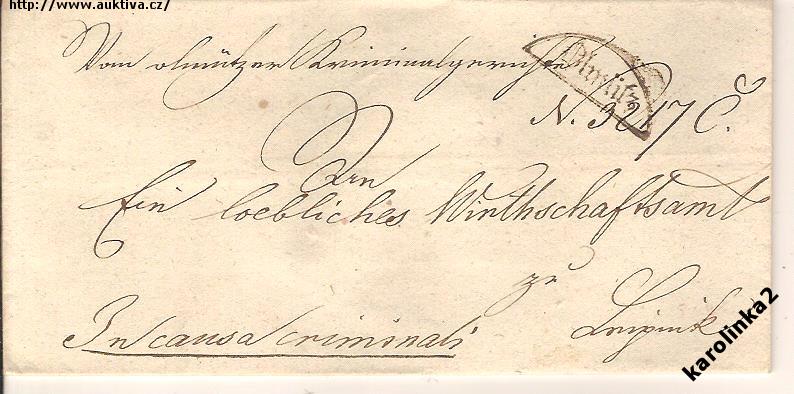 http://www.auktiva.cz/
Vom olmützer Kriminalgerichte
Olmütz
N. 3617 C.
An
Ein loebliches Wirthschaftsamt
zu
In causa criminali
Leipnik
karolinka2